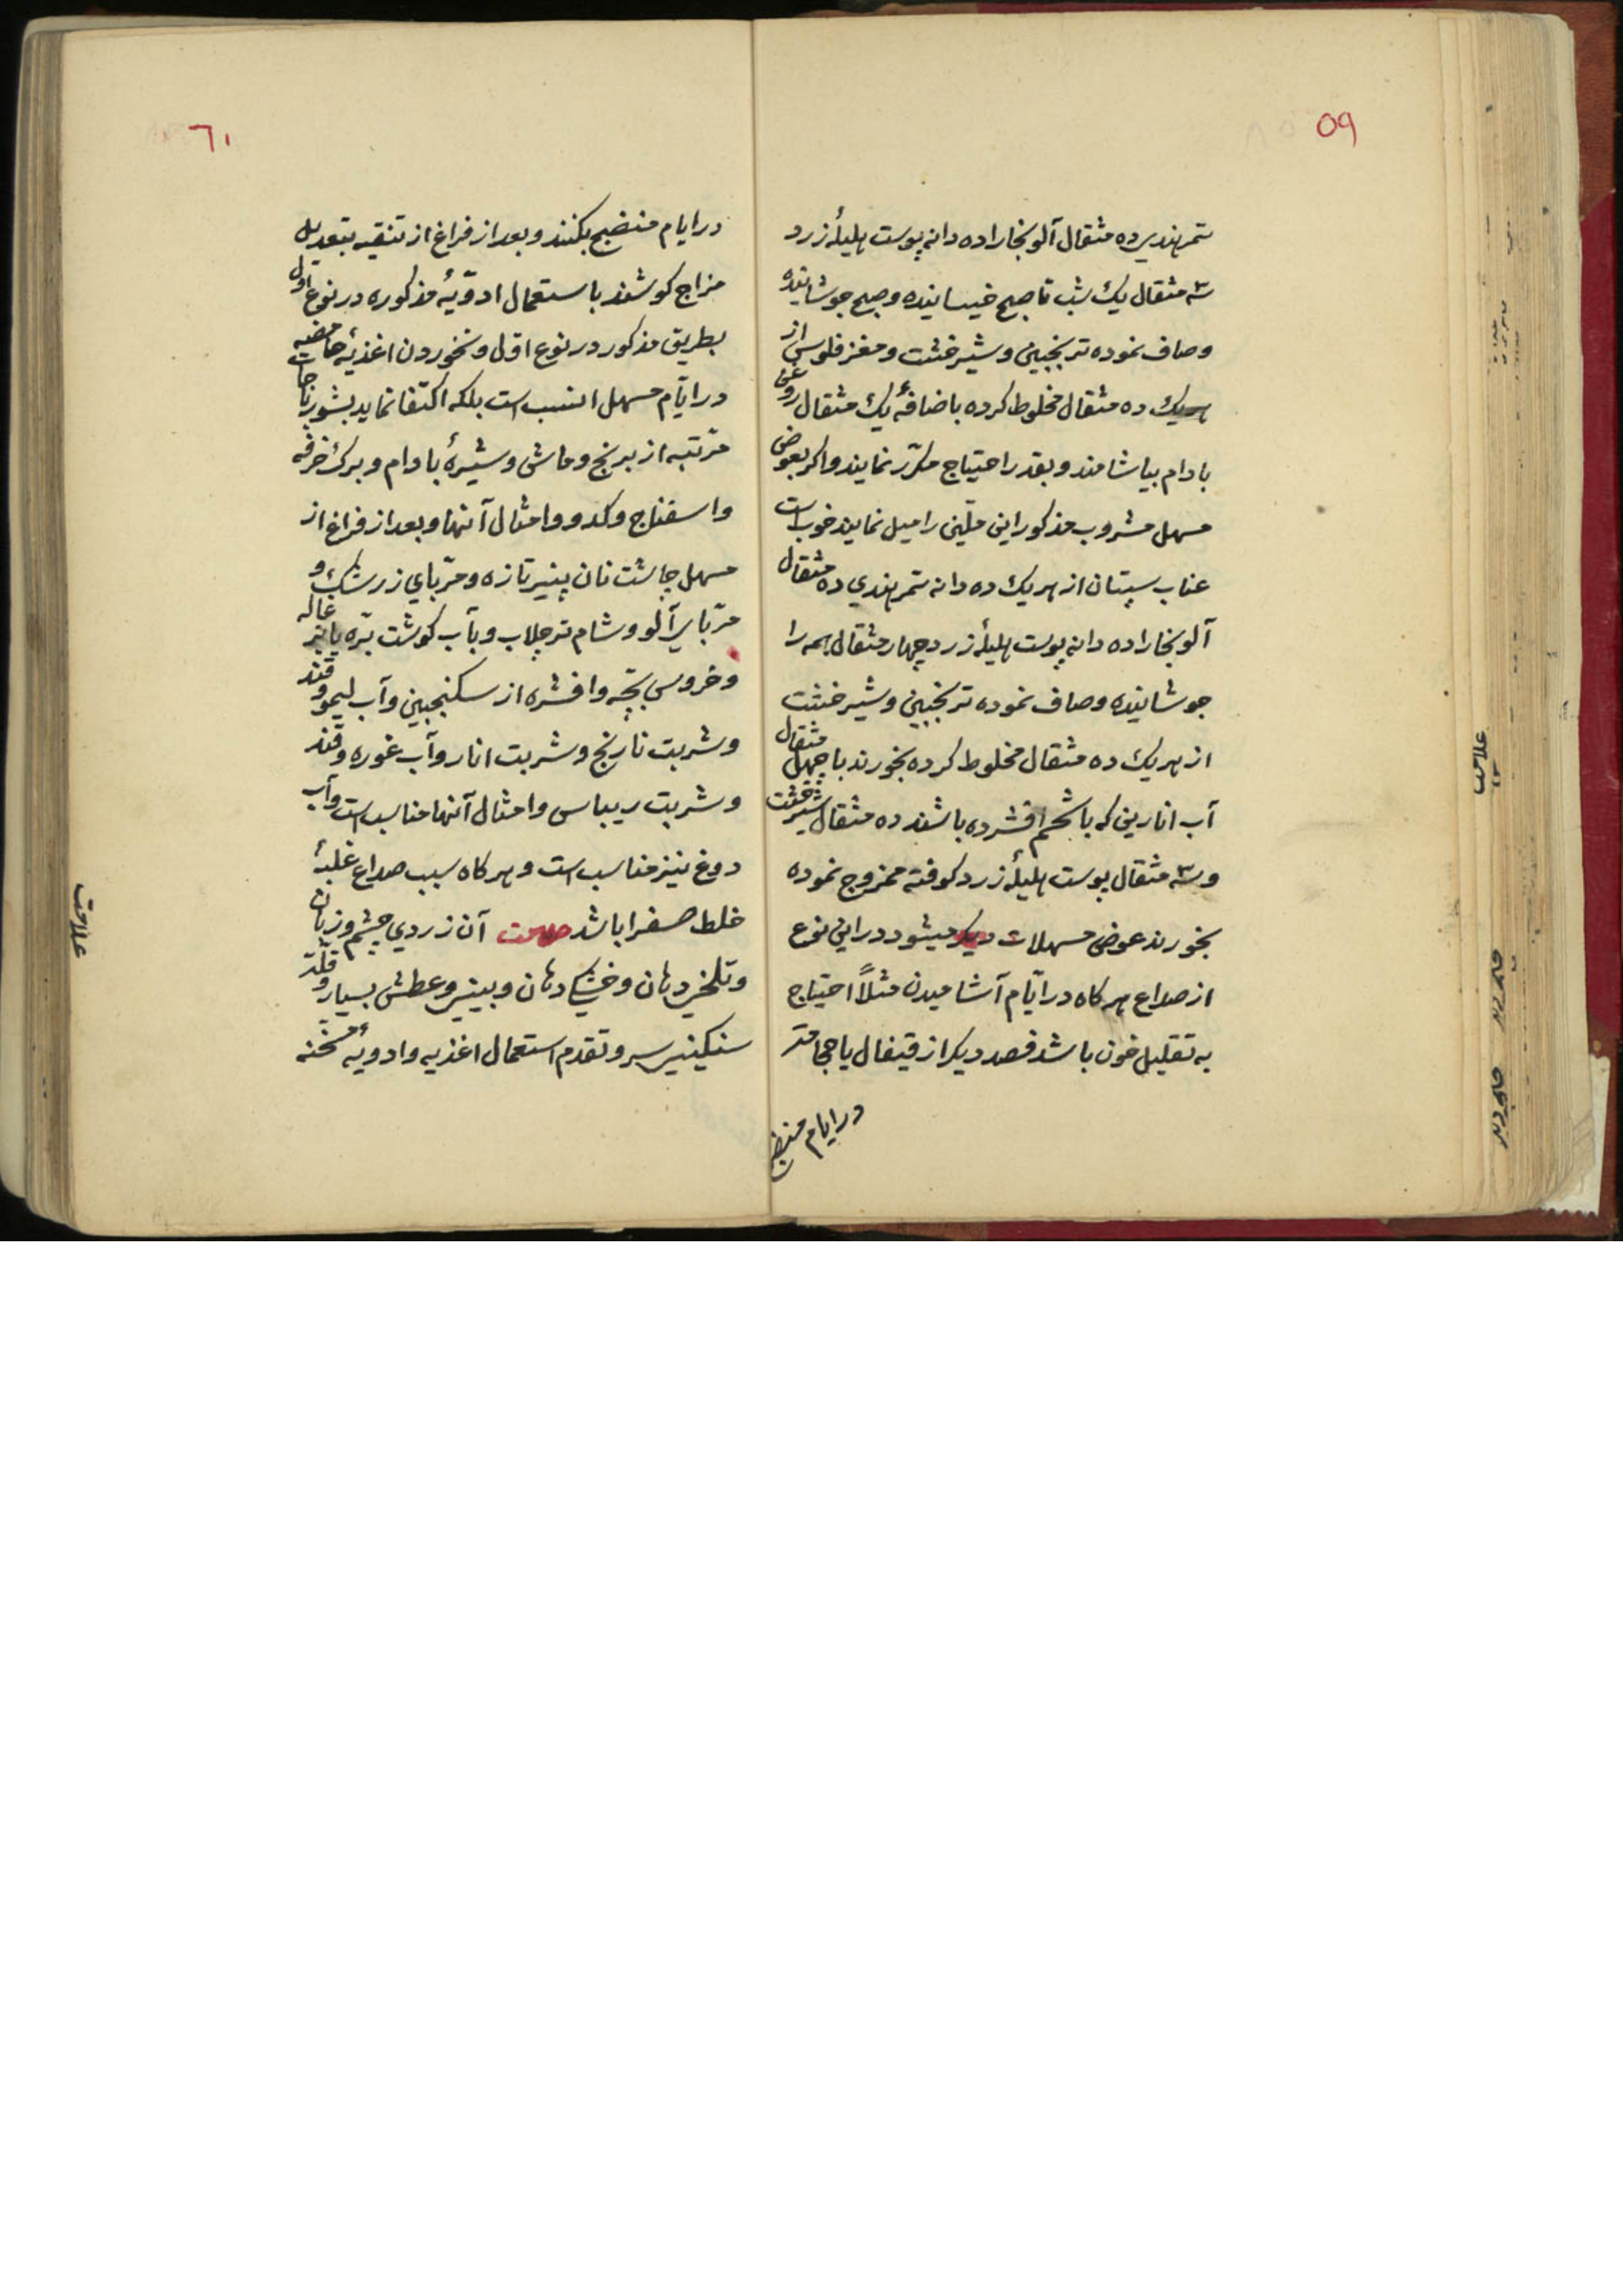 ٥٩
تمرهندي ده مثقال آلوبخارا ده دانه پوست هلیلهٔ زرد
سه مثقال یك شب تا صبح خیسانیده و صبح جوشانیده
و صاف نموده ترنجبین و شیرخشت و مغز فلوس از
هریك ده مثقال مخلوط کرده باضافهٔ یك مثقال روغن
بادام بیاشامند و بقدر احتیاج مکرّر نمایند و اکر بعوض
مسهل مشروب مذکور این ملیّن را میل نمایند خوب است
عناب سپتان از هریك ده دانه تمرهندي ده مثقال
آلوبخارا ده دانه پوست هلیلهٔ زرد چهار مثقال همه را
جوشانیده و صاف نموده ترنجبین و شیرخشت
از هریك ده مثقال مخلوط کرده بخورند یا چهل مثقال
آب انارین که با شحم افشرده باشند ده مثقال شیرخشت
و سه مثقال پوست هلیلهٔ زرد کوفته ممزوج نموده
بخورند عوض مسهلات دیکر میشود در این نوع
از صداع هرکاه در ایّام آشامیدن مثلاً احتیاج
به تقلیل خون باشد فصد دیکر از قیفال یا حجامتر
در ایام منضج
علامت
٦٠
در ایام منضج بکنند و بعد از فراغ از تنقیه بتعدیل
مزاج کوشند با ستعمال ادویّهٔ مذکوره در نوع اول
بطریق مذکور در نوع اوّل و نخوردن اغذیهٔ حامضه
در ایّام مسهل انسب است بلکه اکتفا نماید بشوربا جات
مرّتبه از برنج و ماش و شیرهٔ بادام و برك خرفه
و اسفناج و کدو و امثال آنها و بعد از فراغ از
مسهل چاشت نان پنیر تازه و مرّباي زرشك و
مرّباي آلو و شام تر جلاب و بآب کوشت برّه یا بزغاله
و خروس بچّه و افشره از سکنجبین و آب لیمو و قند
و شربت نارنج و شربت انار و آب غوره و قند
و شربت ریباس و امثال آنها مناسب است و آب
دوغ نیز مناسب است و هرکاه سبب صداع غلبهٔ
خلط صفرا باشد علامت آن زردي چشم و زبان
و تلخي دهان و خشکي دهان و بیني و عطش بسیار و قلّت
سنکیني سر و تقدم استعمال اغذیه و ادویهٔ مسخّنه
علامت